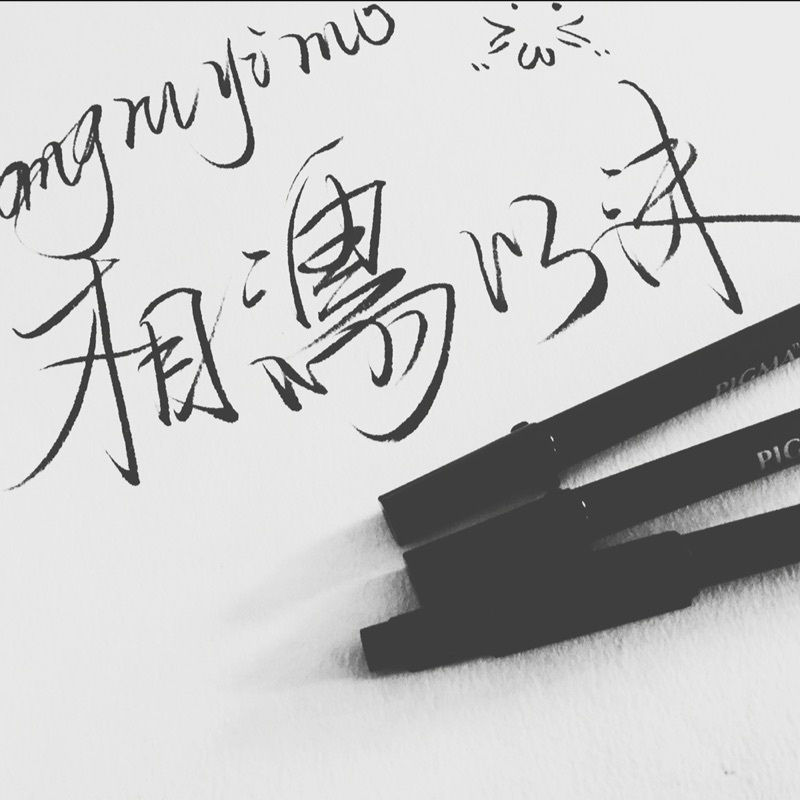 ang ru yi mo
相濡以沫
PIGMA
PIG